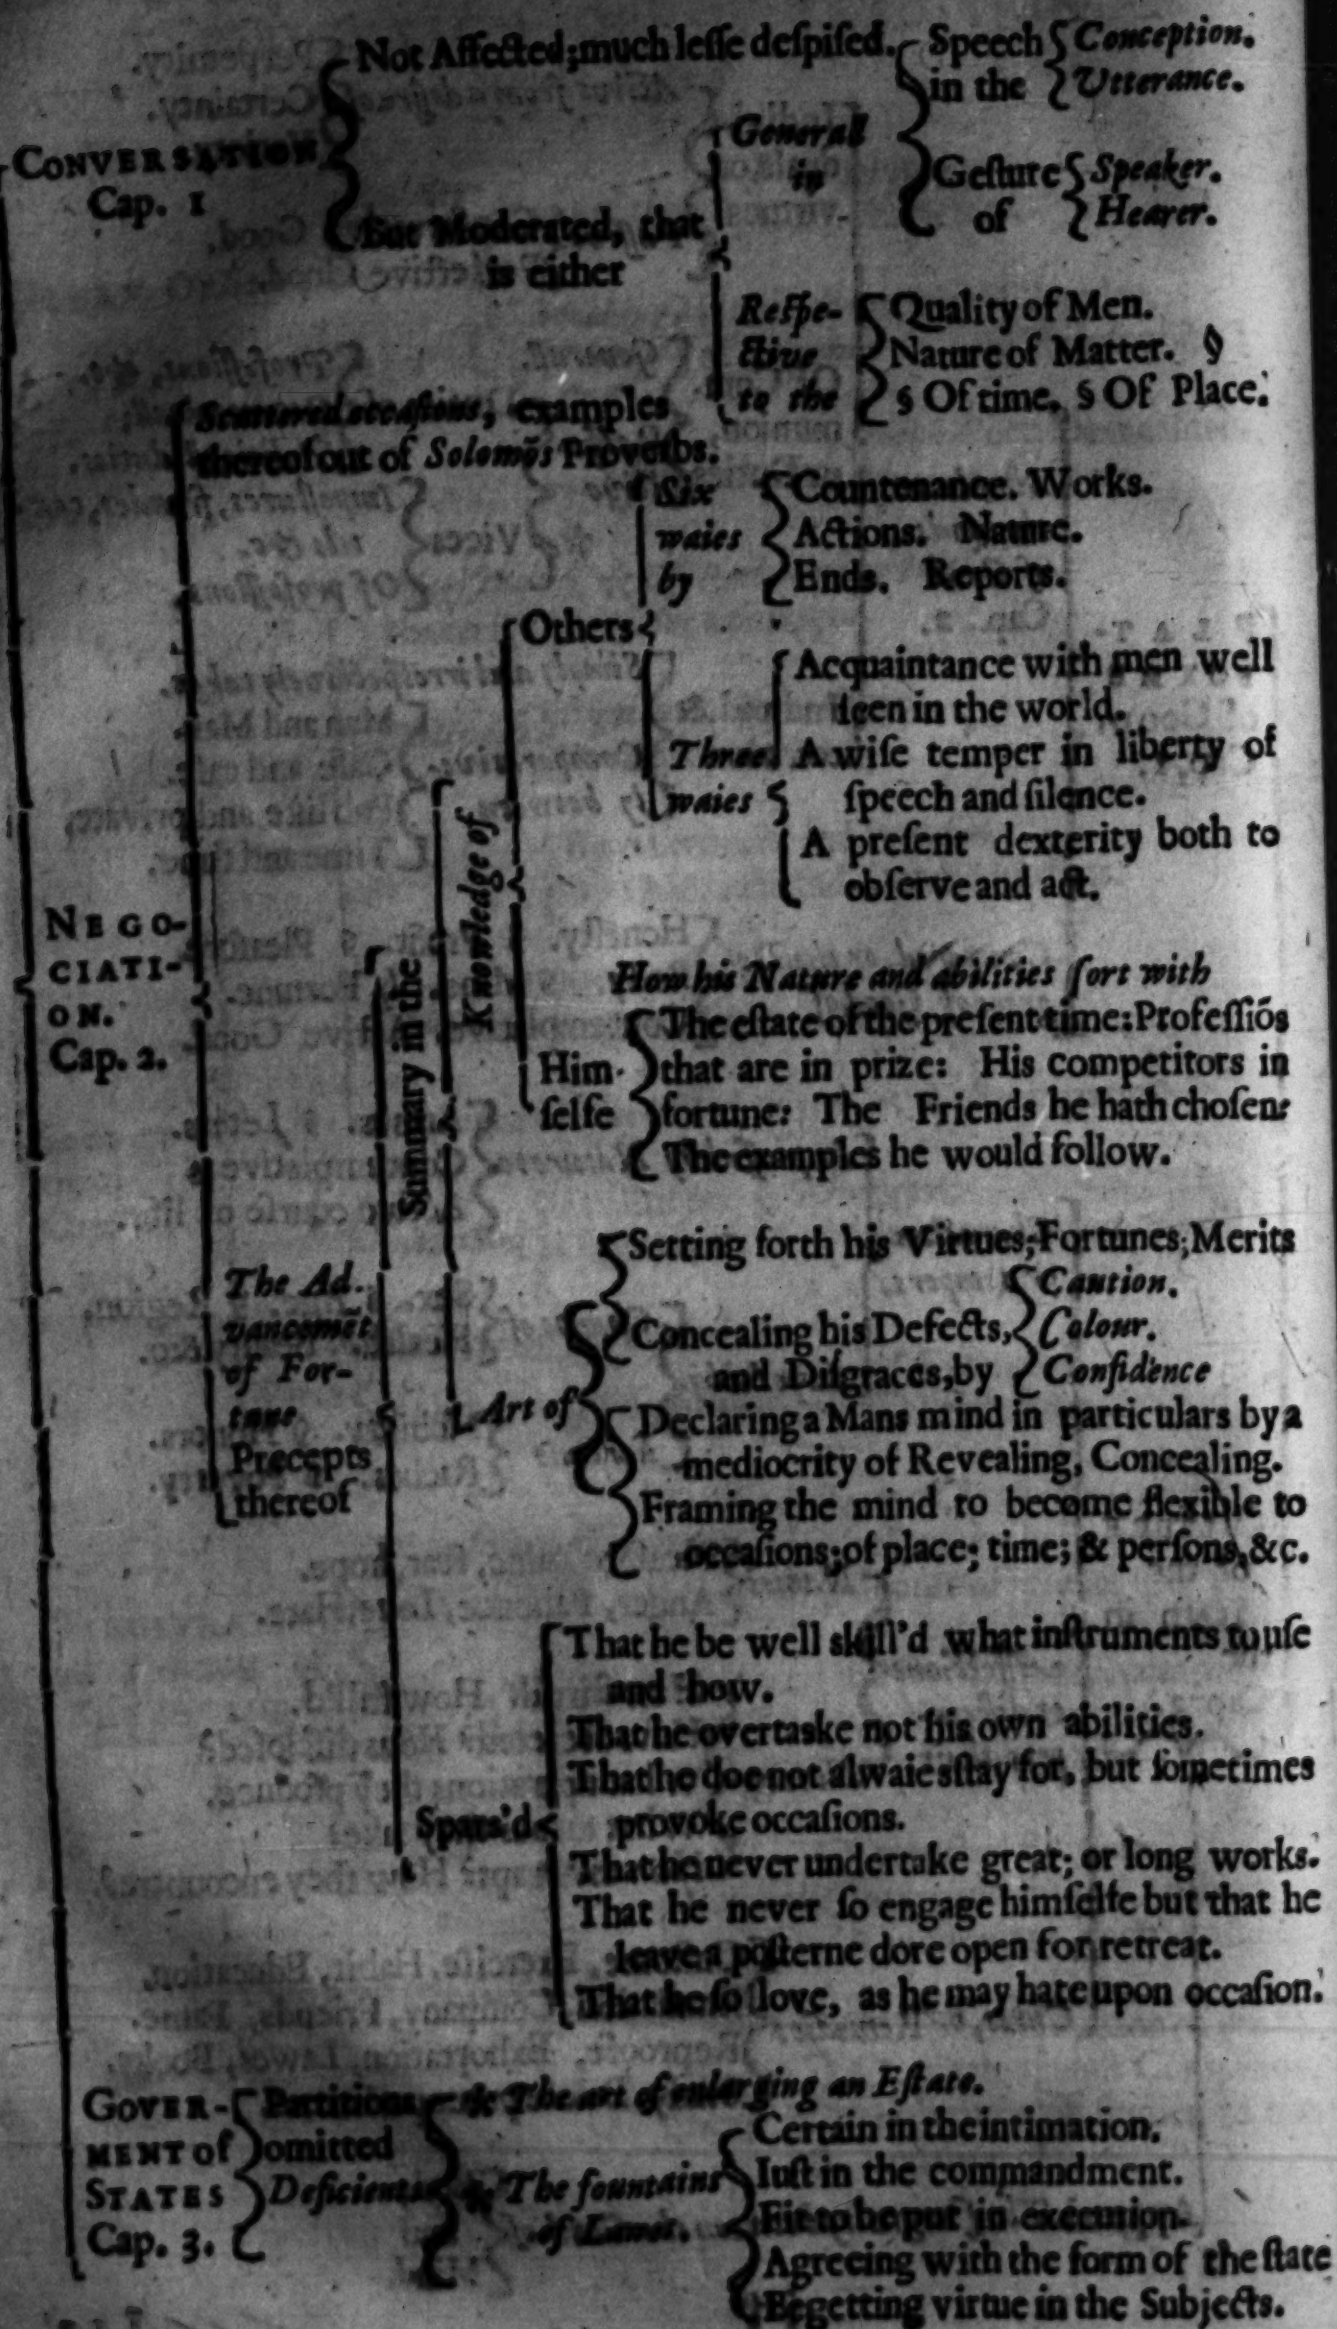 Not Affected; much leſſe deſpiſed.
CONVERSATION
Cap. 1
But Moderated, that
is either
Generall
in
Speech
in the
Conception.
Utterance.
Geſture
of
Speaker.
Hearer.
Reſpe-
ctive
to the
Quality of Men.
Nature of Matter. §
§ Of time. § Of Place.
NEGO-
CIATI-
ON.
Cap. 2.
Scattered occaſions, examples
thereof out of Solomõs Proverbs.
The Ad-
vancomẽt
of For-
tune
Precepts
thereof
Summary in the
Knowledge of
Others
Six
waies
by
Countenance. Works.
Actions. Nature.
Ends. Reports.
Three
waies
Acquaintance with men well
ſeen in the world.
A wiſe temper in liberty of
ſpeech and ſilence.
A preſent dexterity both to
obſerve and act.
Him-
ſelfe
How his Nature and abilities ſort with
The eſtate of the preſent time: Profeſſiõs
that are in prize: His competitors in
fortune: The Friends he hath choſen:
The examples he would follow.
Art of
Setting forth his Virtues; Fortunes; Merits
Concealing his Defects,
and Diſgraces, by
Caution.
Colour.
Confidence
Declaring a Mans mind in particulars by a
mediocrity of Revealing, Concealing.
Framing the mind to become flexible to
occaſions; of place; time; & perſons, &c.
Spars'd
That he be well skill'd what inſtruments to uſe
and how.
That he overtaske not his own abilities.
That he doe not alwaies ſtay for, but ſometimes
provoke occaſions.
That he never undertake great; or long works.
That he never ſo engage himſelfe but that he
leave a poſterne dore open for retreat.
That he ſo love, as he may hate upon occaſion.
GOVER-
MENT of
STATES
Cap. 3.
Partitions
omitted
Deficients
* The art of enlarging an Eſtate.
* The fountains
of Lawes.
Certain in the intimation.
Iuſt in the commandment.
Fit to be put in execution.
Agreeing with the form of the ſtate
Begetting virtue in the Subjects.